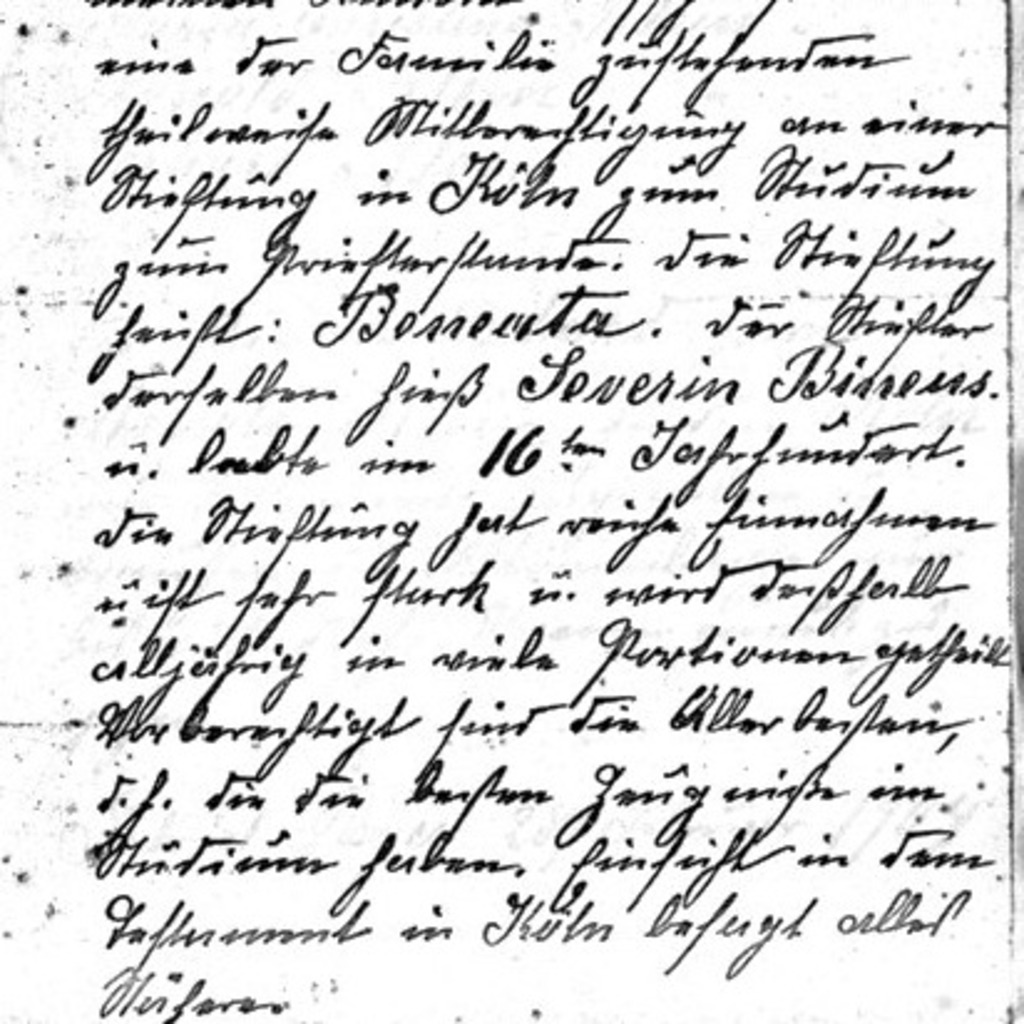 eine der Familie zustehenden
theilweise Mitberechtigung an einer
Stieftung in Köln zum Studium
zum Priesterstande. Die Stieftung
heißt: Beneata. Der Stiefter
derselben hieß Severin Bineus.
u. lebte im 16ten Jahrhundert.
Die Stieftung hat reiche Einnahmen
u ist sehr stark u. wird deßhalb
alljährig in viele Portionen getheilt
Vorberechtigt sind die Allerbesten,
d.h. die die besten Zeugniße im
Studium haben. Einsicht in dem
Testament in Köln besagt alles
Nähere